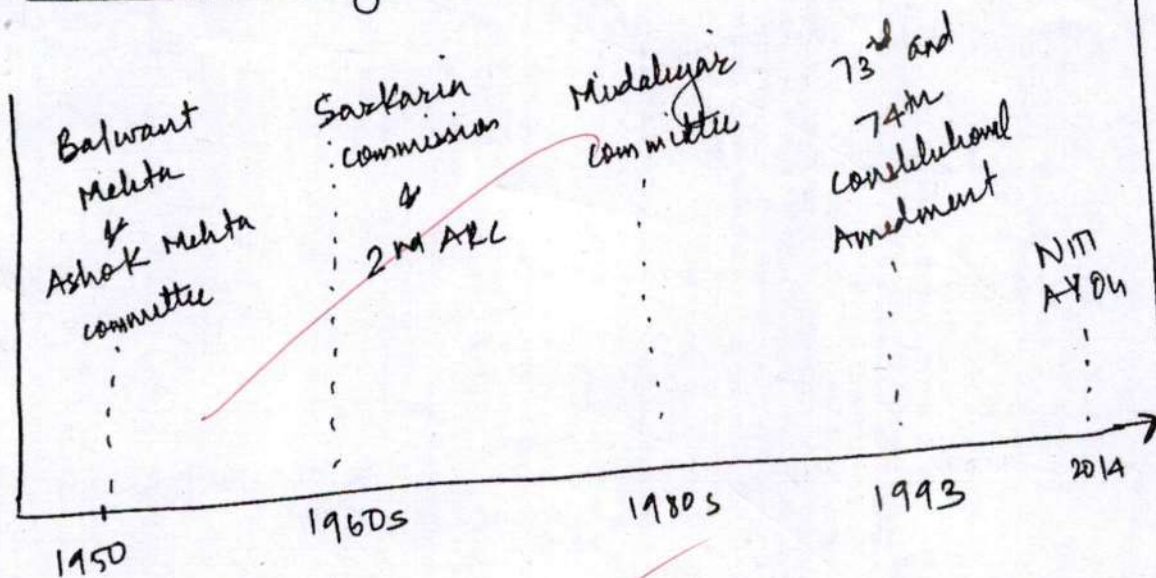 Balwant
Mehta
&
Ashok Mehta
committee
Sarkaria
commission
&
2nd ARC
Mudaliyar
committee
73rd and
74th
constitutional
Amedment
NITI
AYOG
1950
1960s
1980s
1993
2014